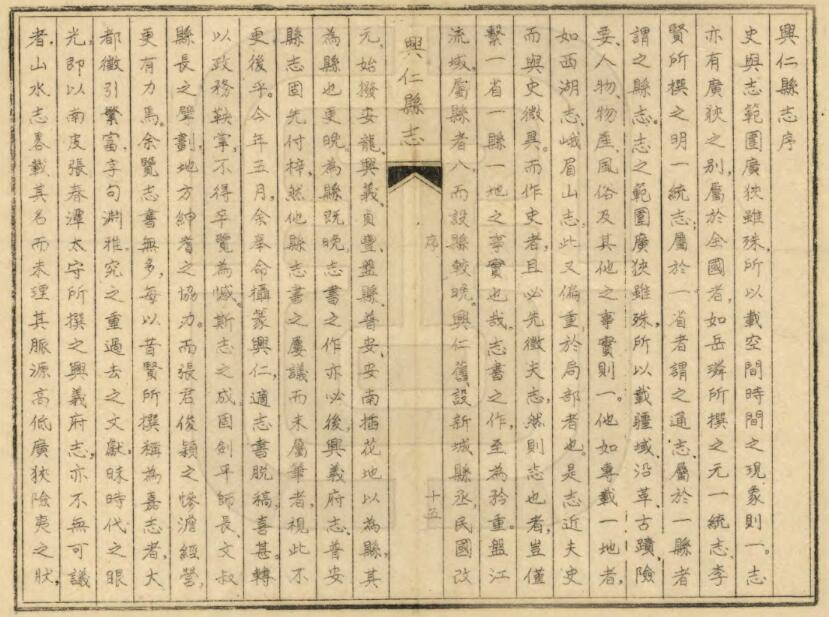 興仁縣志序
史與志範圍廣狹雖殊，所以載空間時間之現象則一。志
亦有廣狹之別，屬於全國者，如岳璘所撰之元一統志、李
賢所撰之明一統志；屬於一省者謂之通志，屬於一縣者
謂之縣志。志之範圍廣狹雖殊，所以載疆域、沿革、古蹟、險
要、人物、物產、風俗及其他之事實則一。他如專載一地者，
如西湖志、峨眉山志，此又偏重於局部者也。是志近夫史
而與史微異。而作史者，且必先徵夫志，然則志也者，豈僅
繫一省一縣一地之事實也哉。志書之作，至為矜重。盤江
流域，屬縣者八，而設縣較晚。興仁舊設新城縣丞，民國改
興仁縣志
序
十五
元，始撥安龍、興義、貞豐、盤縣、普安、安南插花地以為縣，其
為縣也更晚。為縣既晚，志書之作亦必後，興義府志、普安
縣志固先付梓，然他縣志書之屢議而未屬筆者，視此不
更後乎。今年五月，余奉命攝篆興仁，適志書脫稿，喜甚。轉
以政務鞅掌，不得卒覽為憾。斯志之成，固劍平師長、文叔
縣長之擘劃，地方紳耆之協力，而張君俊穎之慘澹經營，
更有力焉。余覽志書無多，每以昔賢所撰稱為嘉志者，大
都徵引繁富，字句淵雅。究之重過去之文獻，昧時代之眼
光，即以南皮張春潭太守所撰之興義府志，亦不無可議
者。山水志畧載其名而未理其脈源高低廣狹險夷之狀，